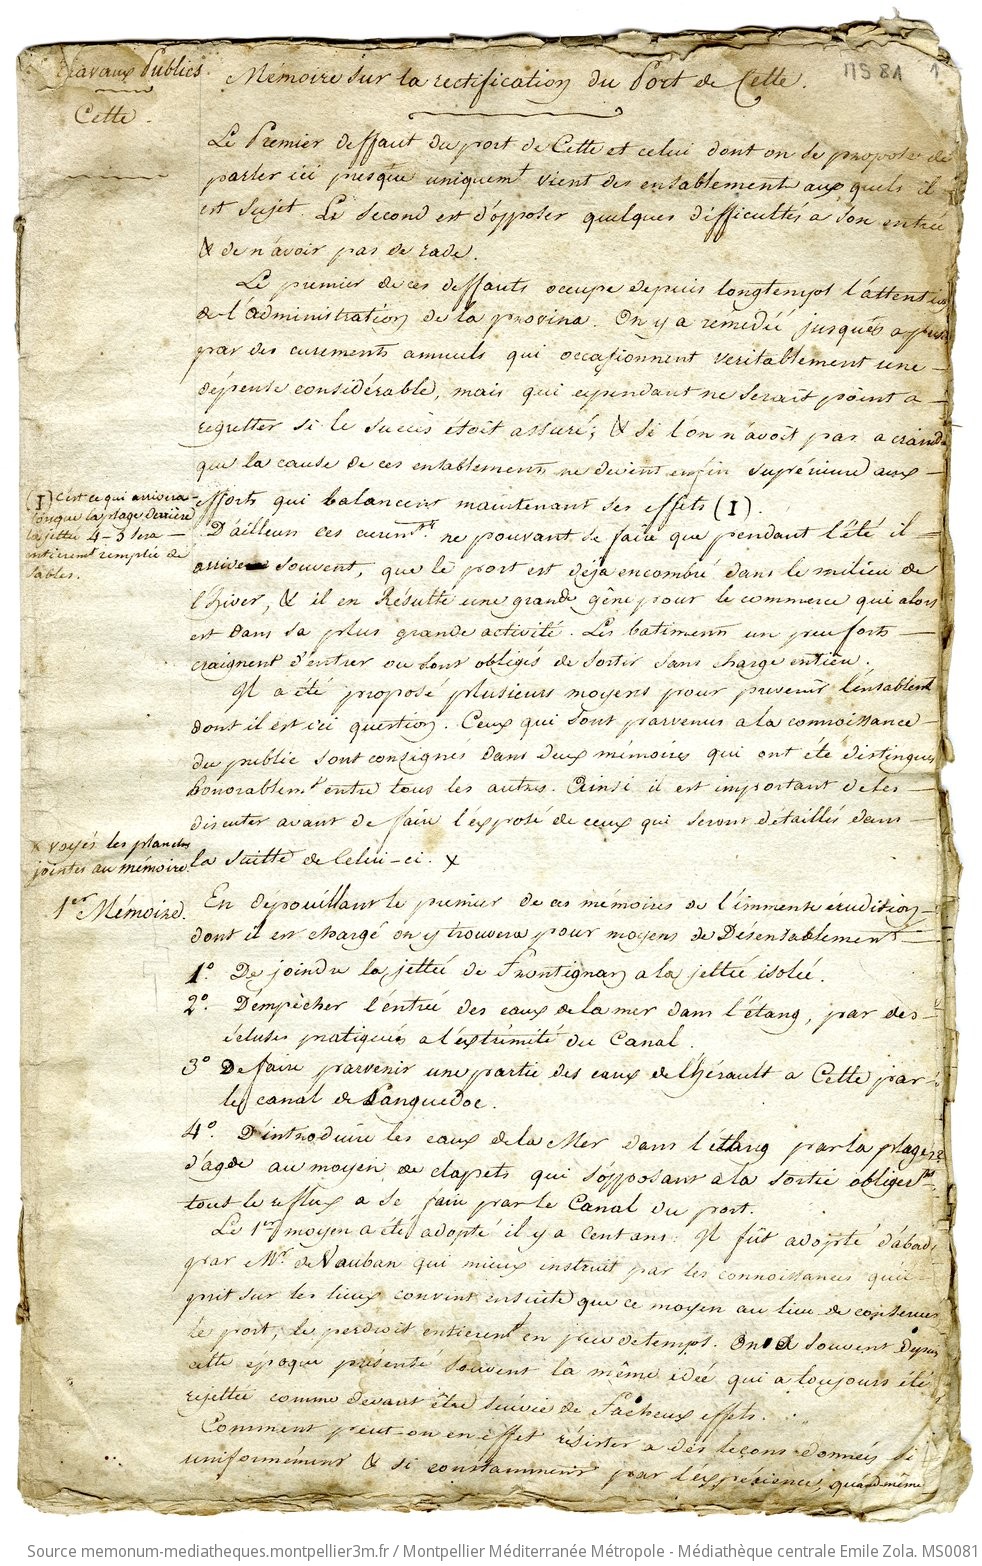 Travaux Publics
Cette.
Mémoire sur la rectification du Port de Cette.
MS 81 1
Le Premier deffaut du port de Cette et celui dont on se propose de
parler ici presque uniquemt vient des ensablement auxquels il
est sujet. Le second est d'opposer quelques difficultés a son entrée
& de n'avoir pas de rade.
Le premier de ces deffauts occupe depuis longtemps l'attention
de l'administration de la province. On y a remedié jusqués a présent
par des curements annuels qui occasionnent veritablement une
dépense considérable, mais qui cependant ne serait point a
regretter si le succès étoit assuré; & si l'on n'avoit pas a craindre
que la cause de ces ensablements ne devient enfin supérieure aux
efforts qui balancent maintenant ses effets (1).
(1) C'est ce qui arrivera
lorsque la plage derrière
la jettée 4-3 sera
entierement remplie de
sables.
D'ailleurs ces curemts ne pouvant se faire que pendant l'été il
arrive souvent, que le port est déja encombré dans le milieu de
l'hiver, & il en Résulte une grande gêne pour le commerce qui alors
est dans sa plus grande activité. Les batimens un peu forts
craignent d'entrer ou sont obligés de sortir sans charge entiere.
Il a été proposé plusieurs moyens pour prevenir l'ensablemt
dont il est ici question. Ceux qui sont parvenus a la connoissance
du public sont consignés dans deux mémoires qui ont été distingués
honorablemt entre tous les autres. Ainsi il est important de les
discuter avant de faire l'exposé de ceux qui seront détaillés dans
la suitte de Celui-ci. x
x voyés les planches
jointes au mémoire.
1er Mémoire.
En dépouillant le premier de ces mémoires de l'immense érudition
dont il est chargé on y trouvera pour moyens de Désensablement
1º. De joindre la jettée de Frontignan a la jettée isolée.
2º. D'empêcher l'entrée des eaux de la mer dans l'étang, par des
écluses pratiquées a l'extrémité du Canal.
3º De faire parvenir une partie des eaux de l'hérault a Cette par
le canal de Languedoc.
4º. D'introduire les eaux de la Mer dans l'étang par la plage
d'agde au moyen de clapets qui s'opposant a la sortie obligent
tout le reflux a se faire par le Canal du port.
Le 1er moyen a été adopté il y a cent ans. Il fût adopté d'abord
par Mr. de Vauban qui mieux instruit par les connoissances qu'il
prit sur les lieux convint ensuite que ce moyen au lieu de conserver
le port, le perdroit entierent en peu de temps. On a souvent depuis
cette époque présenté souvent la même idée qui a toujours été
rejettée comme devant être suivie de facheux effets.
Comment peut-on en effet résister a des leçons données si
uniformément & si constamment par l'expérience, quand même
Source memonum-mediatheques.montpellier3m.fr / Montpellier Méditerranée Métropole - Médiathèque centrale Emile Zola. MS0081